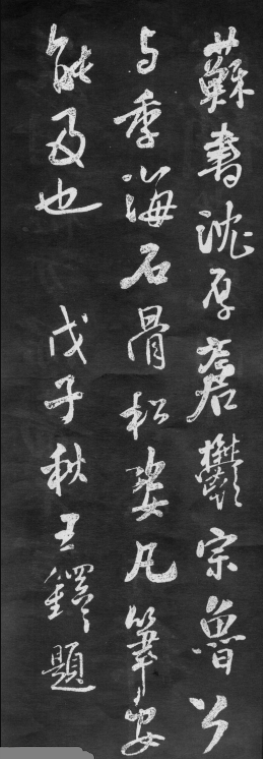 蘇書沈厚蒼鬱宗魯公
与季海石骨松姿凡筆安
能及也 戊子秋王鐸題